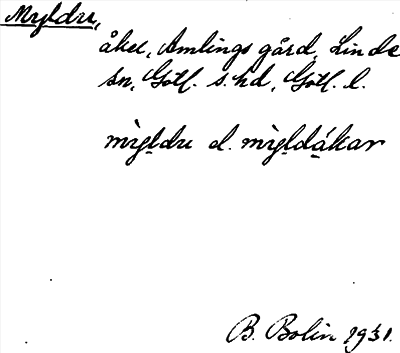 Myldru,
åker, Amlings gård, Linde
sn, Gotl. s. hd, Gotl. l.
mỳldru el. mỳldákar
B. Bolin 1931.